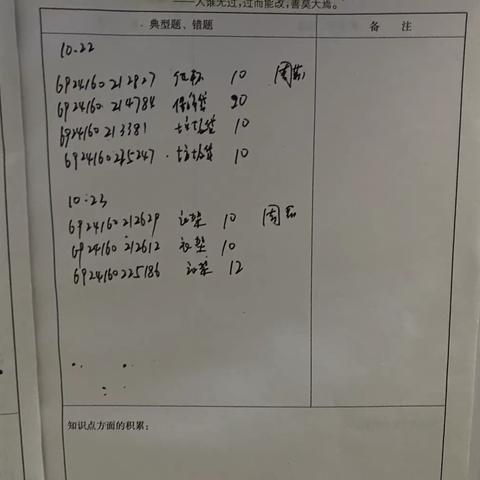 ——人谁无过，过而能改，善莫大焉。
典型题、错题 备 注
10.22
6924160212827 纸杯 10
6924160214784 保鲜袋 20
6924160213381 垃圾袋 10
6924160225247 垃圾袋 10
10.23
6924160212629 衣架 10
6924160212612 衣架 10
6924160225186 衣架 12
知识点方面的积累：